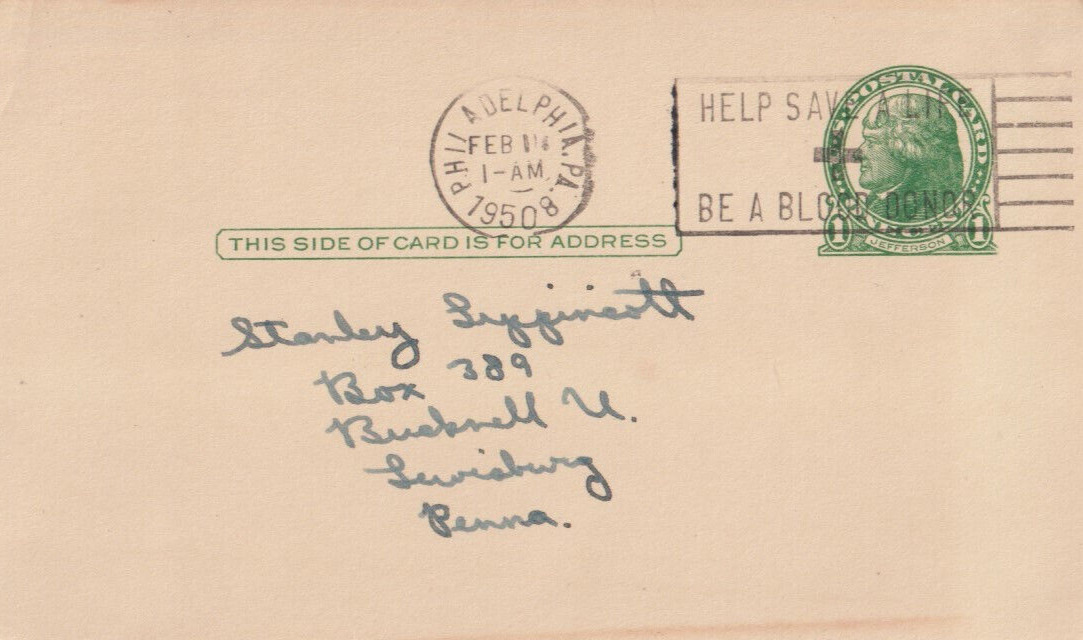 PHILADELPHIA, PA.
FEB
1-AM
1950
8
HELP SAVE A LIFE
BE A BLOOD DONOR
U.S. POSTAL CARD
1 1
JEFFERSON
THIS SIDE OF CARD IS FOR ADDRESS
Stanley Lippincott
Box 389
Bucknell U.
Lewisburg
Penna.